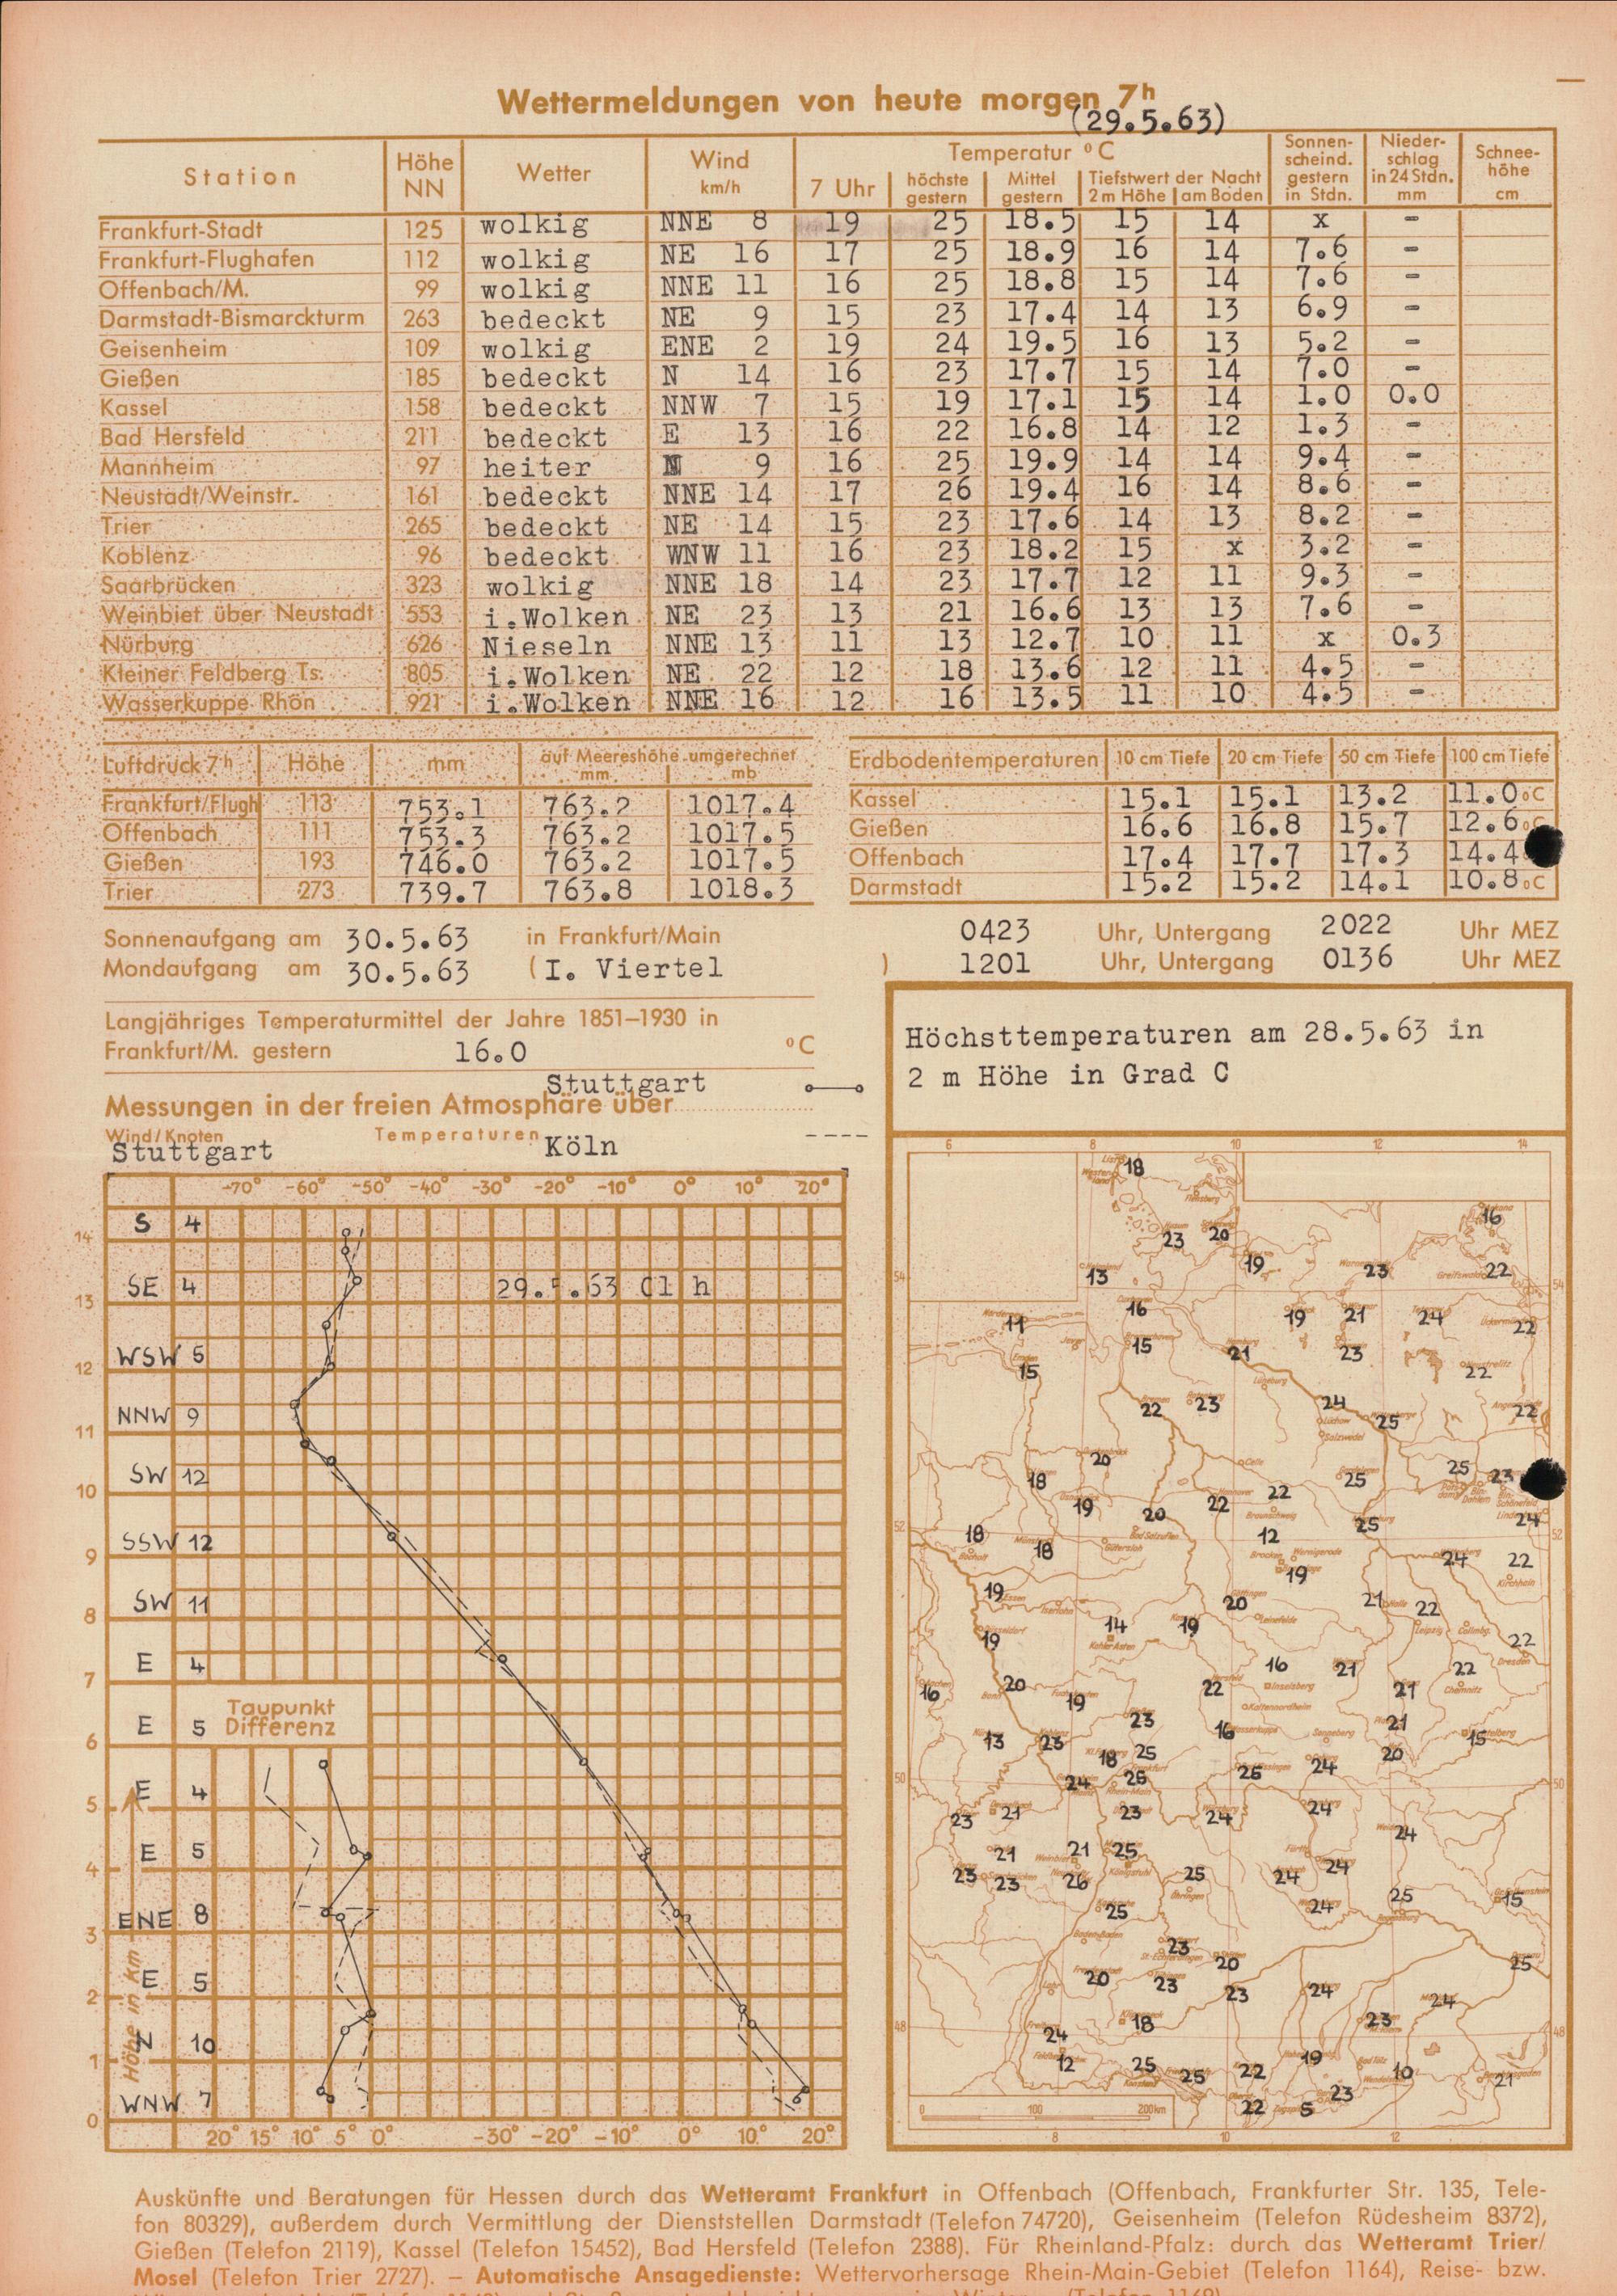 Wettermeldungen von heute morgen 7h
(29.5.63)
Station Höhe NN Wetter Wind km/h Temperatur °C 7 Uhr höchste gestern Mittel gestern Tiefstwert der Nacht 2 m Höhe am Boden Sonnen-scheind. gestern in Stdn. Nieder-schlag in 24 Stdn. mm Schnee-höhe cm
Frankfurt-Stadt 125 wolkig NNE 8 19 25 18.5 15 14 x -
Frankfurt-Flughafen 112 wolkig NE 16 17 25 18.9 16 14 7.6 -
Offenbach/M. 99 wolkig NNE 11 16 25 18.8 15 14 7.6 -
Darmstadt-Bismarckturm 263 bedeckt NE 9 15 23 17.4 14 13 6.9 -
Geisenheim 109 wolkig ENE 2 19 24 19.5 16 13 5.2 -
Gießen 185 bedeckt N 14 16 23 17.7 15 14 7.0 -
Kassel 158 bedeckt NNW 7 15 19 17.1 15 14 1.0 0.0
Bad Hersfeld 211 bedeckt E 13 16 22 16.8 14 12 1.3 -
Mannheim 97 heiter N 9 16 25 19.9 14 14 9.4 -
Neustadt/Weinstr. 161 bedeckt NNE 14 17 26 19.4 16 14 8.6 -
Trier 265 bedeckt NE 14 15 23 17.6 14 13 8.2 -
Koblenz 96 bedeckt WNW 11 16 23 18.2 15 x 3.2 -
Saarbrücken 323 wolkig NNE 18 14 23 17.7 12 11 9.3 -
Weinbiet über Neustadt 553 i.Wolken NE 23 13 21 16.6 13 13 7.6 -
Nürburg 626 Nieseln NNE 13 11 13 12.7 10 11 x 0.3
Kleiner Feldberg Ts. 805 i.Wolken NE 22 12 18 13.6 12 11 4.5 -
Wasserkuppe Rhön 921 i.Wolken NNE 16 12 16 13.5 11 10 4.5 -
Luftdruck 7h Höhe mm auf Meereshöhe umgerechnet mm mb
Frankfurt/Flugh 113 753.1 763.2 1017.4
Offenbach 111 753.3 763.2 1017.5
Gießen 193 746.0 763.2 1017.5
Trier 273 739.7 763.8 1018.3
Erdbodentemperaturen 10 cm Tiefe 20 cm Tiefe 50 cm Tiefe 100 cm Tiefe
Kassel 15.1 15.1 13.2 11.0 °C
Gießen 16.6 16.8 15.7 12.6 °C
Offenbach 17.4 17.7 17.3 14.4
Darmstadt 15.2 15.2 14.1 10.8 °C
Sonnenaufgang am 30.5.63 in Frankfurt/Main 0423 Uhr, Untergang 2022 Uhr MEZ
Mondaufgang am 30.5.63 (I. Viertel ) 1201 Uhr, Untergang 0136 Uhr MEZ
Langjähriges Temperaturmittel der Jahre 1851–1930 in
Frankfurt/M. gestern 16.0 °C
Stuttgart
Messungen in der freien Atmosphäre über
Wind/Knoten Temperaturen Köln
Stuttgart
-70° -60° -50° -40° -30° -20° -10° 0° 10° 20°
S 4
14
SE 4 29.5.63 01 h
13
WSW 5
12
NNW 9
11
SW 12
10
SSW 12
9
SW 11
8
E 4
7
Taupunkt
E 5 Differenz
6
E 4
5
E 5
4
ENE 8
3
E 5
2
N 10
1
WNW 7
0
Höhe in km
20° 15° 10° 5° 0° -30° -20° -10° 0° 10° 20°
Höchsttemperaturen am 28.5.63 in
2 m Höhe in Grad C
6 8 10 12 14
18
16
23 20
19
13 23 22
54 54
16
11 19 21 24 22
15 21 23
15 22
22 23 24 25 22
20 25 23
18 25
19 22 22
20 25 24
18 12
52 52
18 24 22
19 19
20 21 22
14 19
19 22
16 21 22
20 22 21
16 19
23 16 21
13 23 15
18 25 20
24 26 26 24
50 50
23 21 23 24 24
24
21 21 25 24
23 23 26 25 24
25 15
25 24
23
20 25
20 23 23 24 24
23
18
48 48
24
12 25 19
25 22 10 21
23
22 5
0 100 200km
8 10 12
Auskünfte und Beratungen für Hessen durch das Wetteramt Frankfurt in Offenbach (Offenbach, Frankfurter Str. 135, Tele-
fon 80329), außerdem durch Vermittlung der Dienststellen Darmstadt (Telefon 74720), Geisenheim (Telefon Rüdesheim 8372),
Gießen (Telefon 2119), Kassel (Telefon 15452), Bad Hersfeld (Telefon 2388). Für Rheinland-Pfalz: durch das Wetteramt Trier/
Mosel (Telefon Trier 2727). – Automatische Ansagedienste: Wettervorhersage Rhein-Main-Gebiet (Telefon 1164), Reise- bzw.